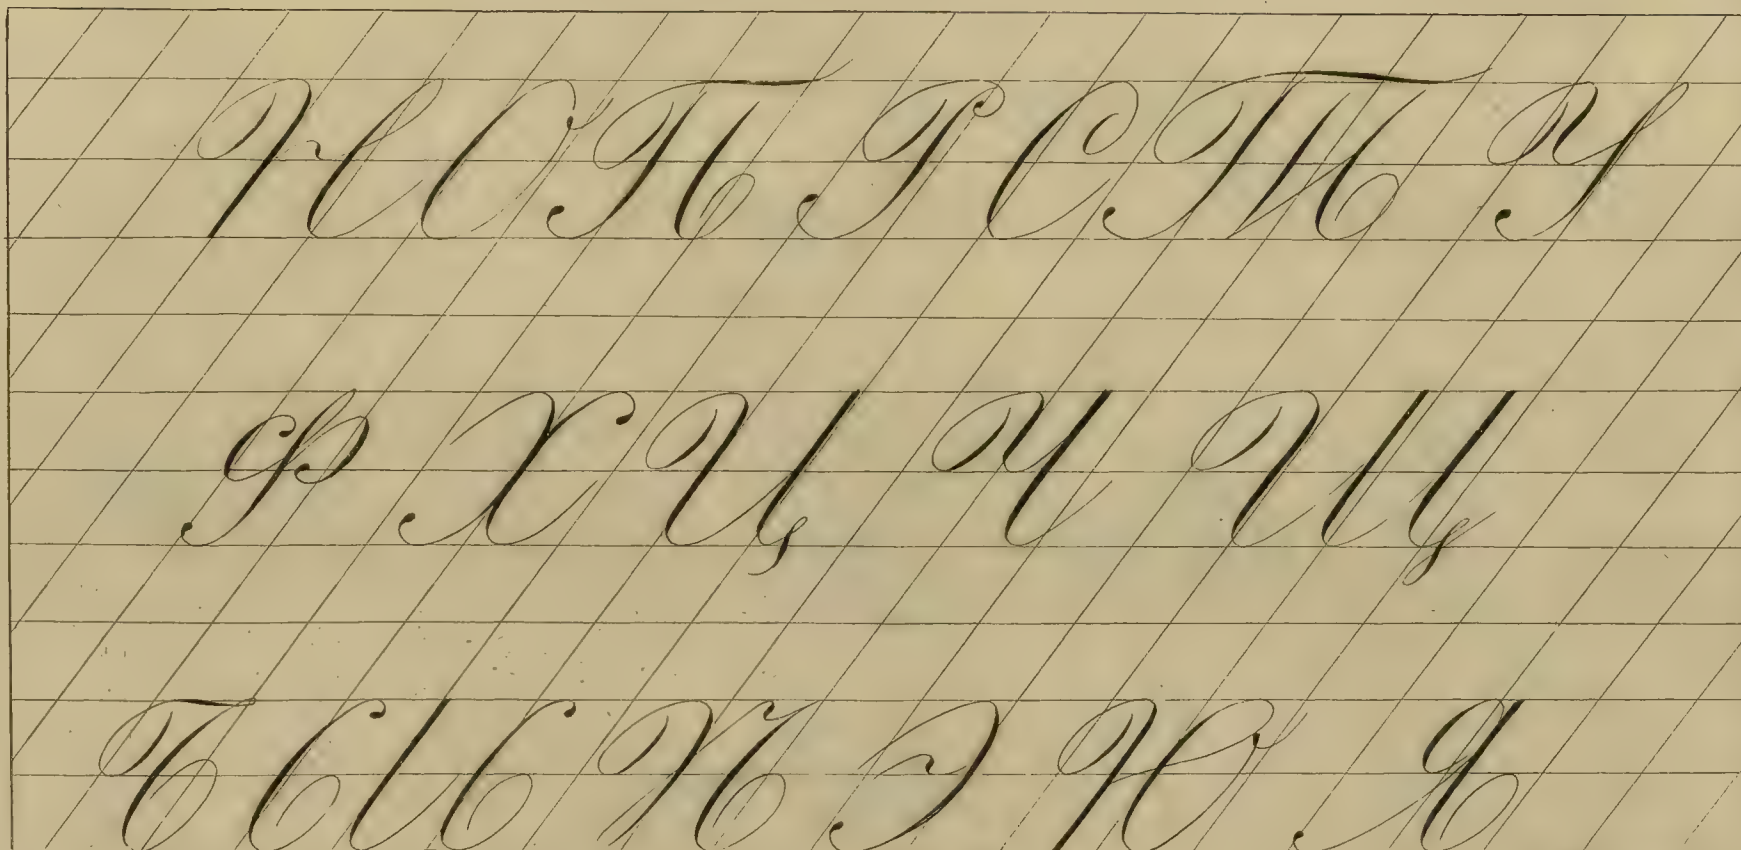 Н О П Р С Т У
Ф Х Ц Ч Щ
Ъ Ы Ь Ѣ Э Ю Я